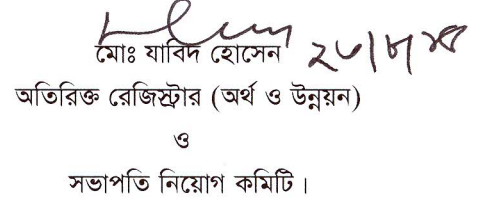 মোঃ যাবিদ হোসেন
অতিরিক্ত রেজিস্ট্রার (অর্থ ও উন্নয়ন)
ও
সভাপতি নিয়োগ কমিটি।